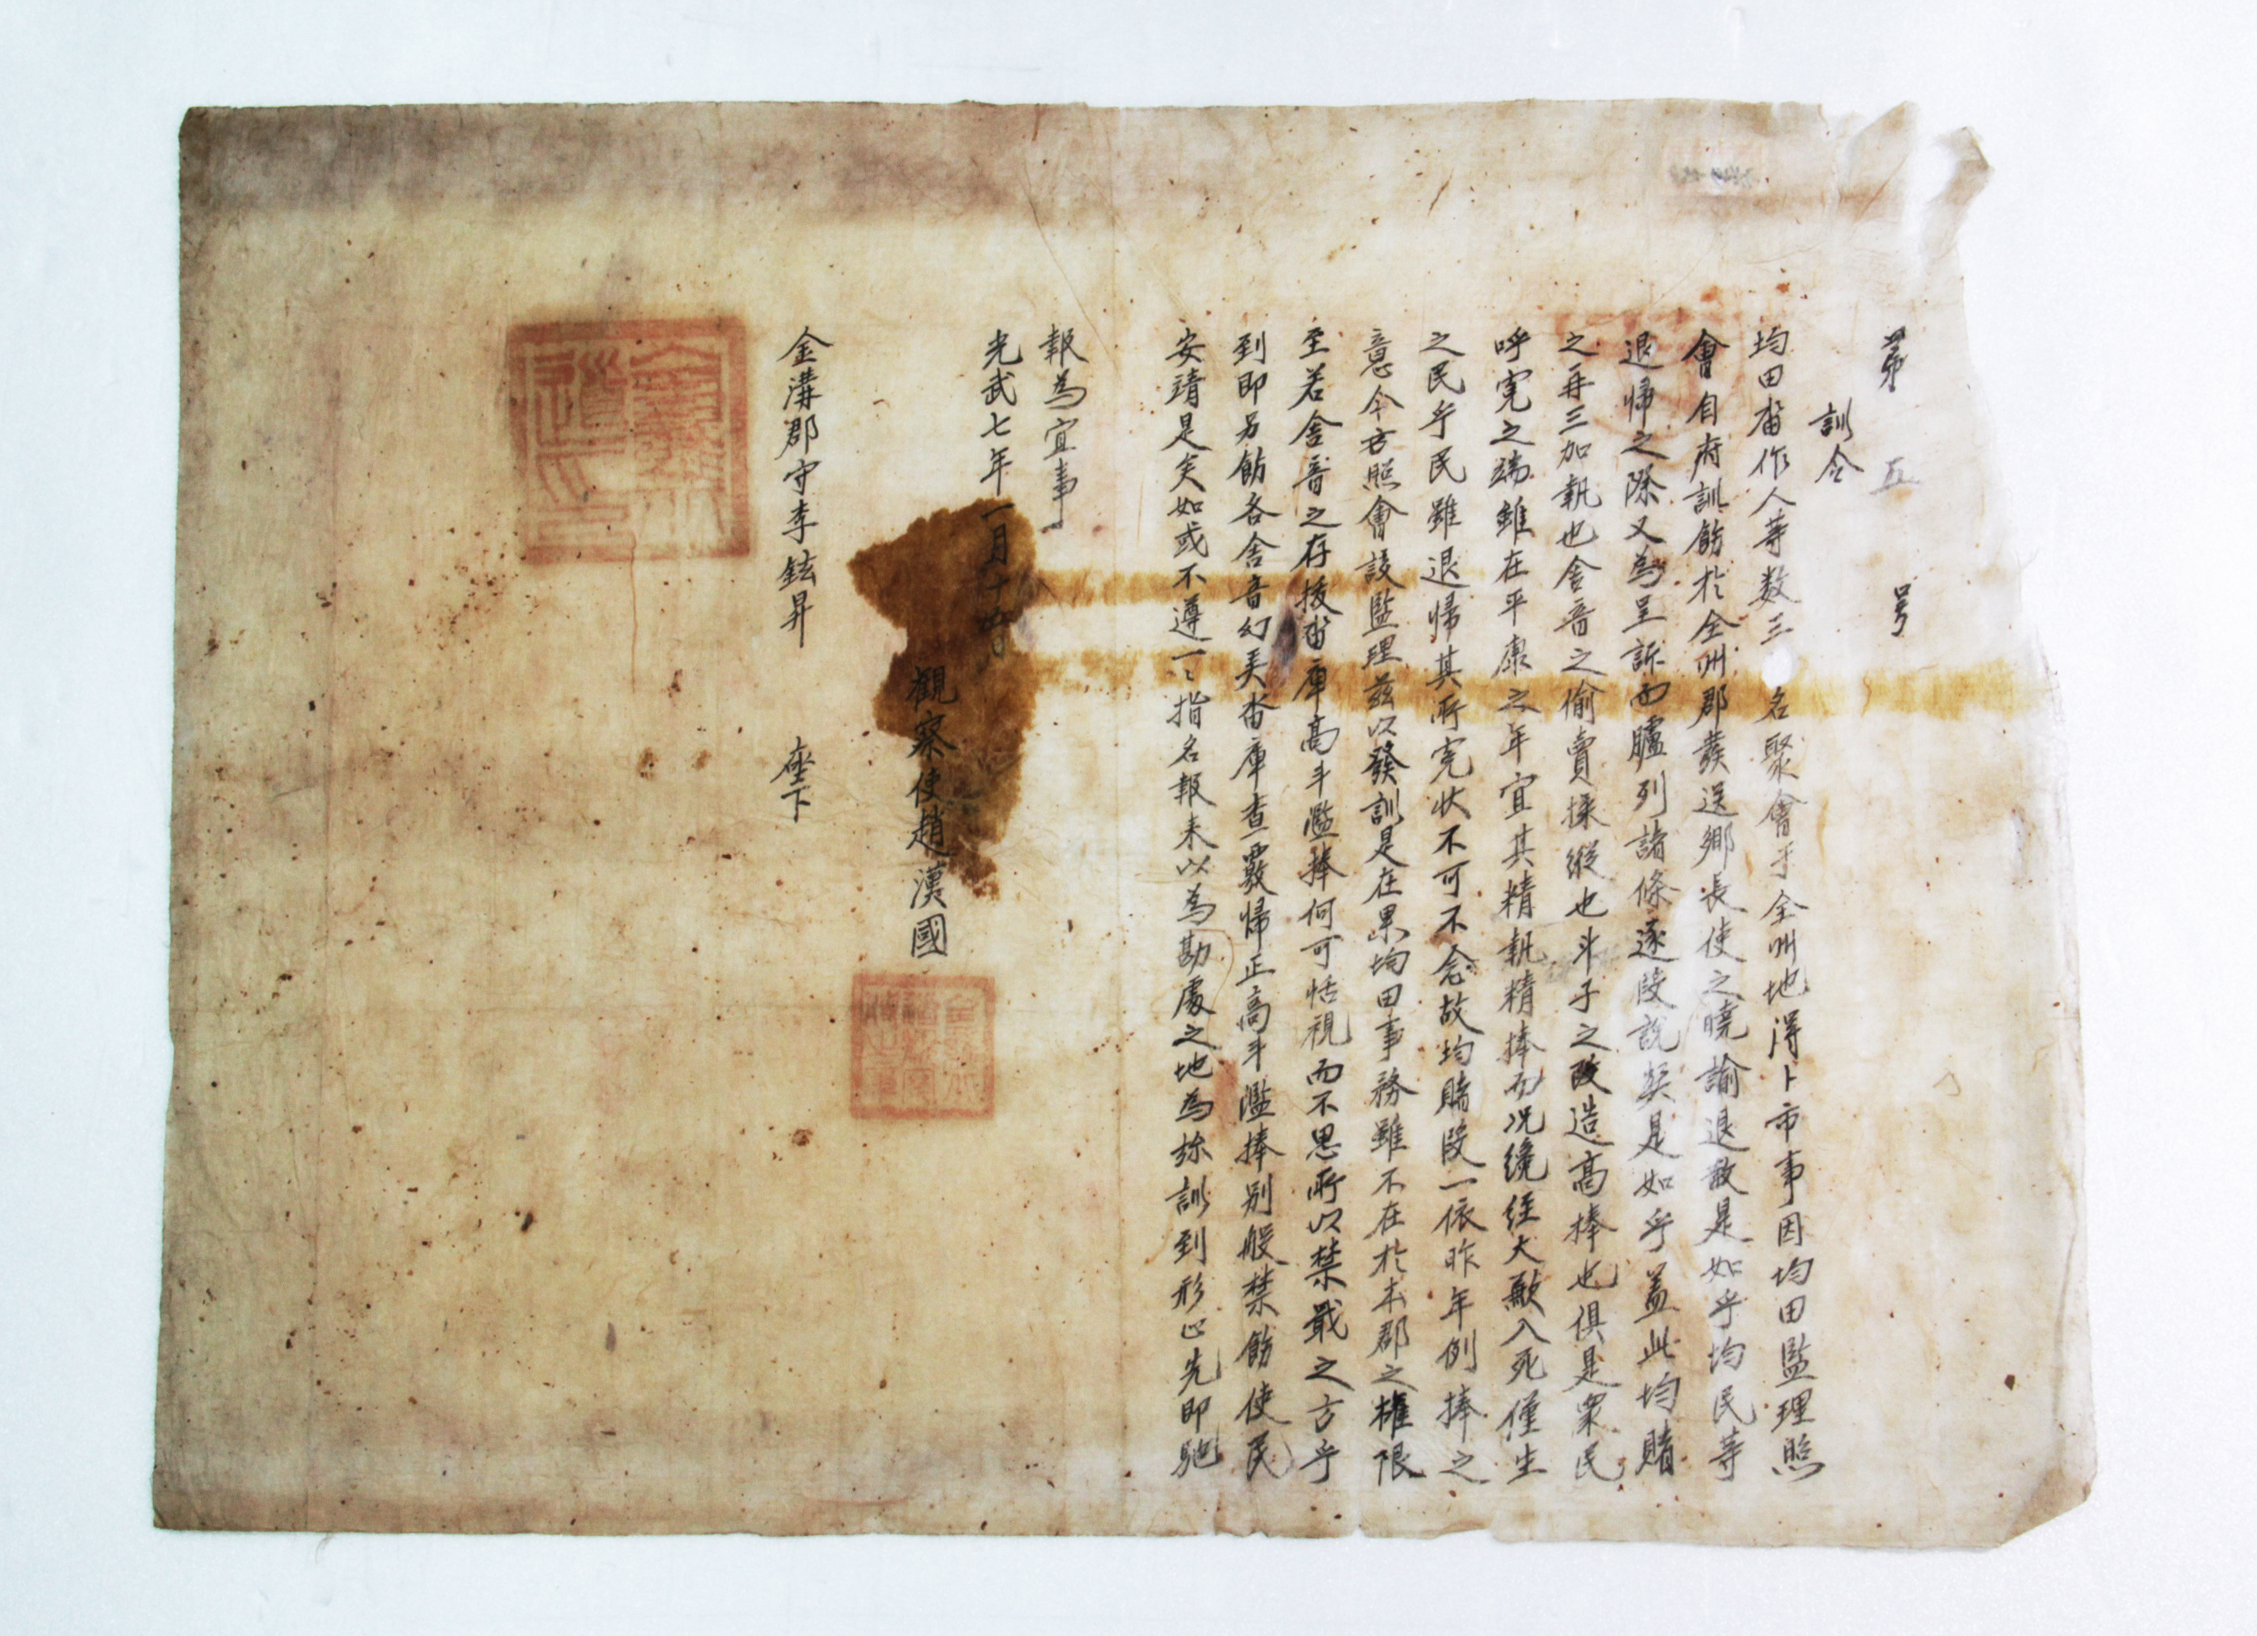 第 五 号
訓令
均田畓作人等数三 名聚會于全州地淂卜市事因均田監理照
會自府訓飭於全州郡發送鄉長使之曉諭退散是如乎均民等
退帰之際又為呈訴而臚列諸條逐段說獘是如乎盖此均賭
之再三加執也舍音之偷賣操縱也斗子之改造高捧也俱是衆民
呼寃之端雖在平康之年宜其精執精捧而况纔経大歉入死僅生
之民乎民雖退帰其所寃状不可不念故均賭段一依昨年例捧之
意今方照會該監理玆以發訓是在果均田事務雖不在於本郡之權限
至若舍音之存拔畓庫高斗濫捧何可恬視而不思所以禁戢之方乎
到即另飭各舍音幻弄畓庫查覈帰正高斗濫捧別般禁飭使民
安靖是矣如或不遵一〻指名報来以為勘處之地為旀訓到形止先即馳
報為宜事
光武七年一月十四日
觀察使趙漢國
金溝郡守李鉉昇 座下